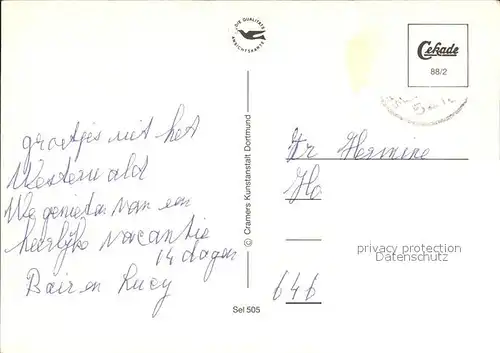 DIE QUALITÄTS
ANSICHTSKARTE
Cekade
88/2
groetjes uit het
Westerwald
We genieten van een
heerlijke vacantie
14 dagen
Bair en Lucy
© Cramers Kunstanstalt Dortmund
Sel 505
Fr Hermine
Ho
privacy protection
Datenschutz
646